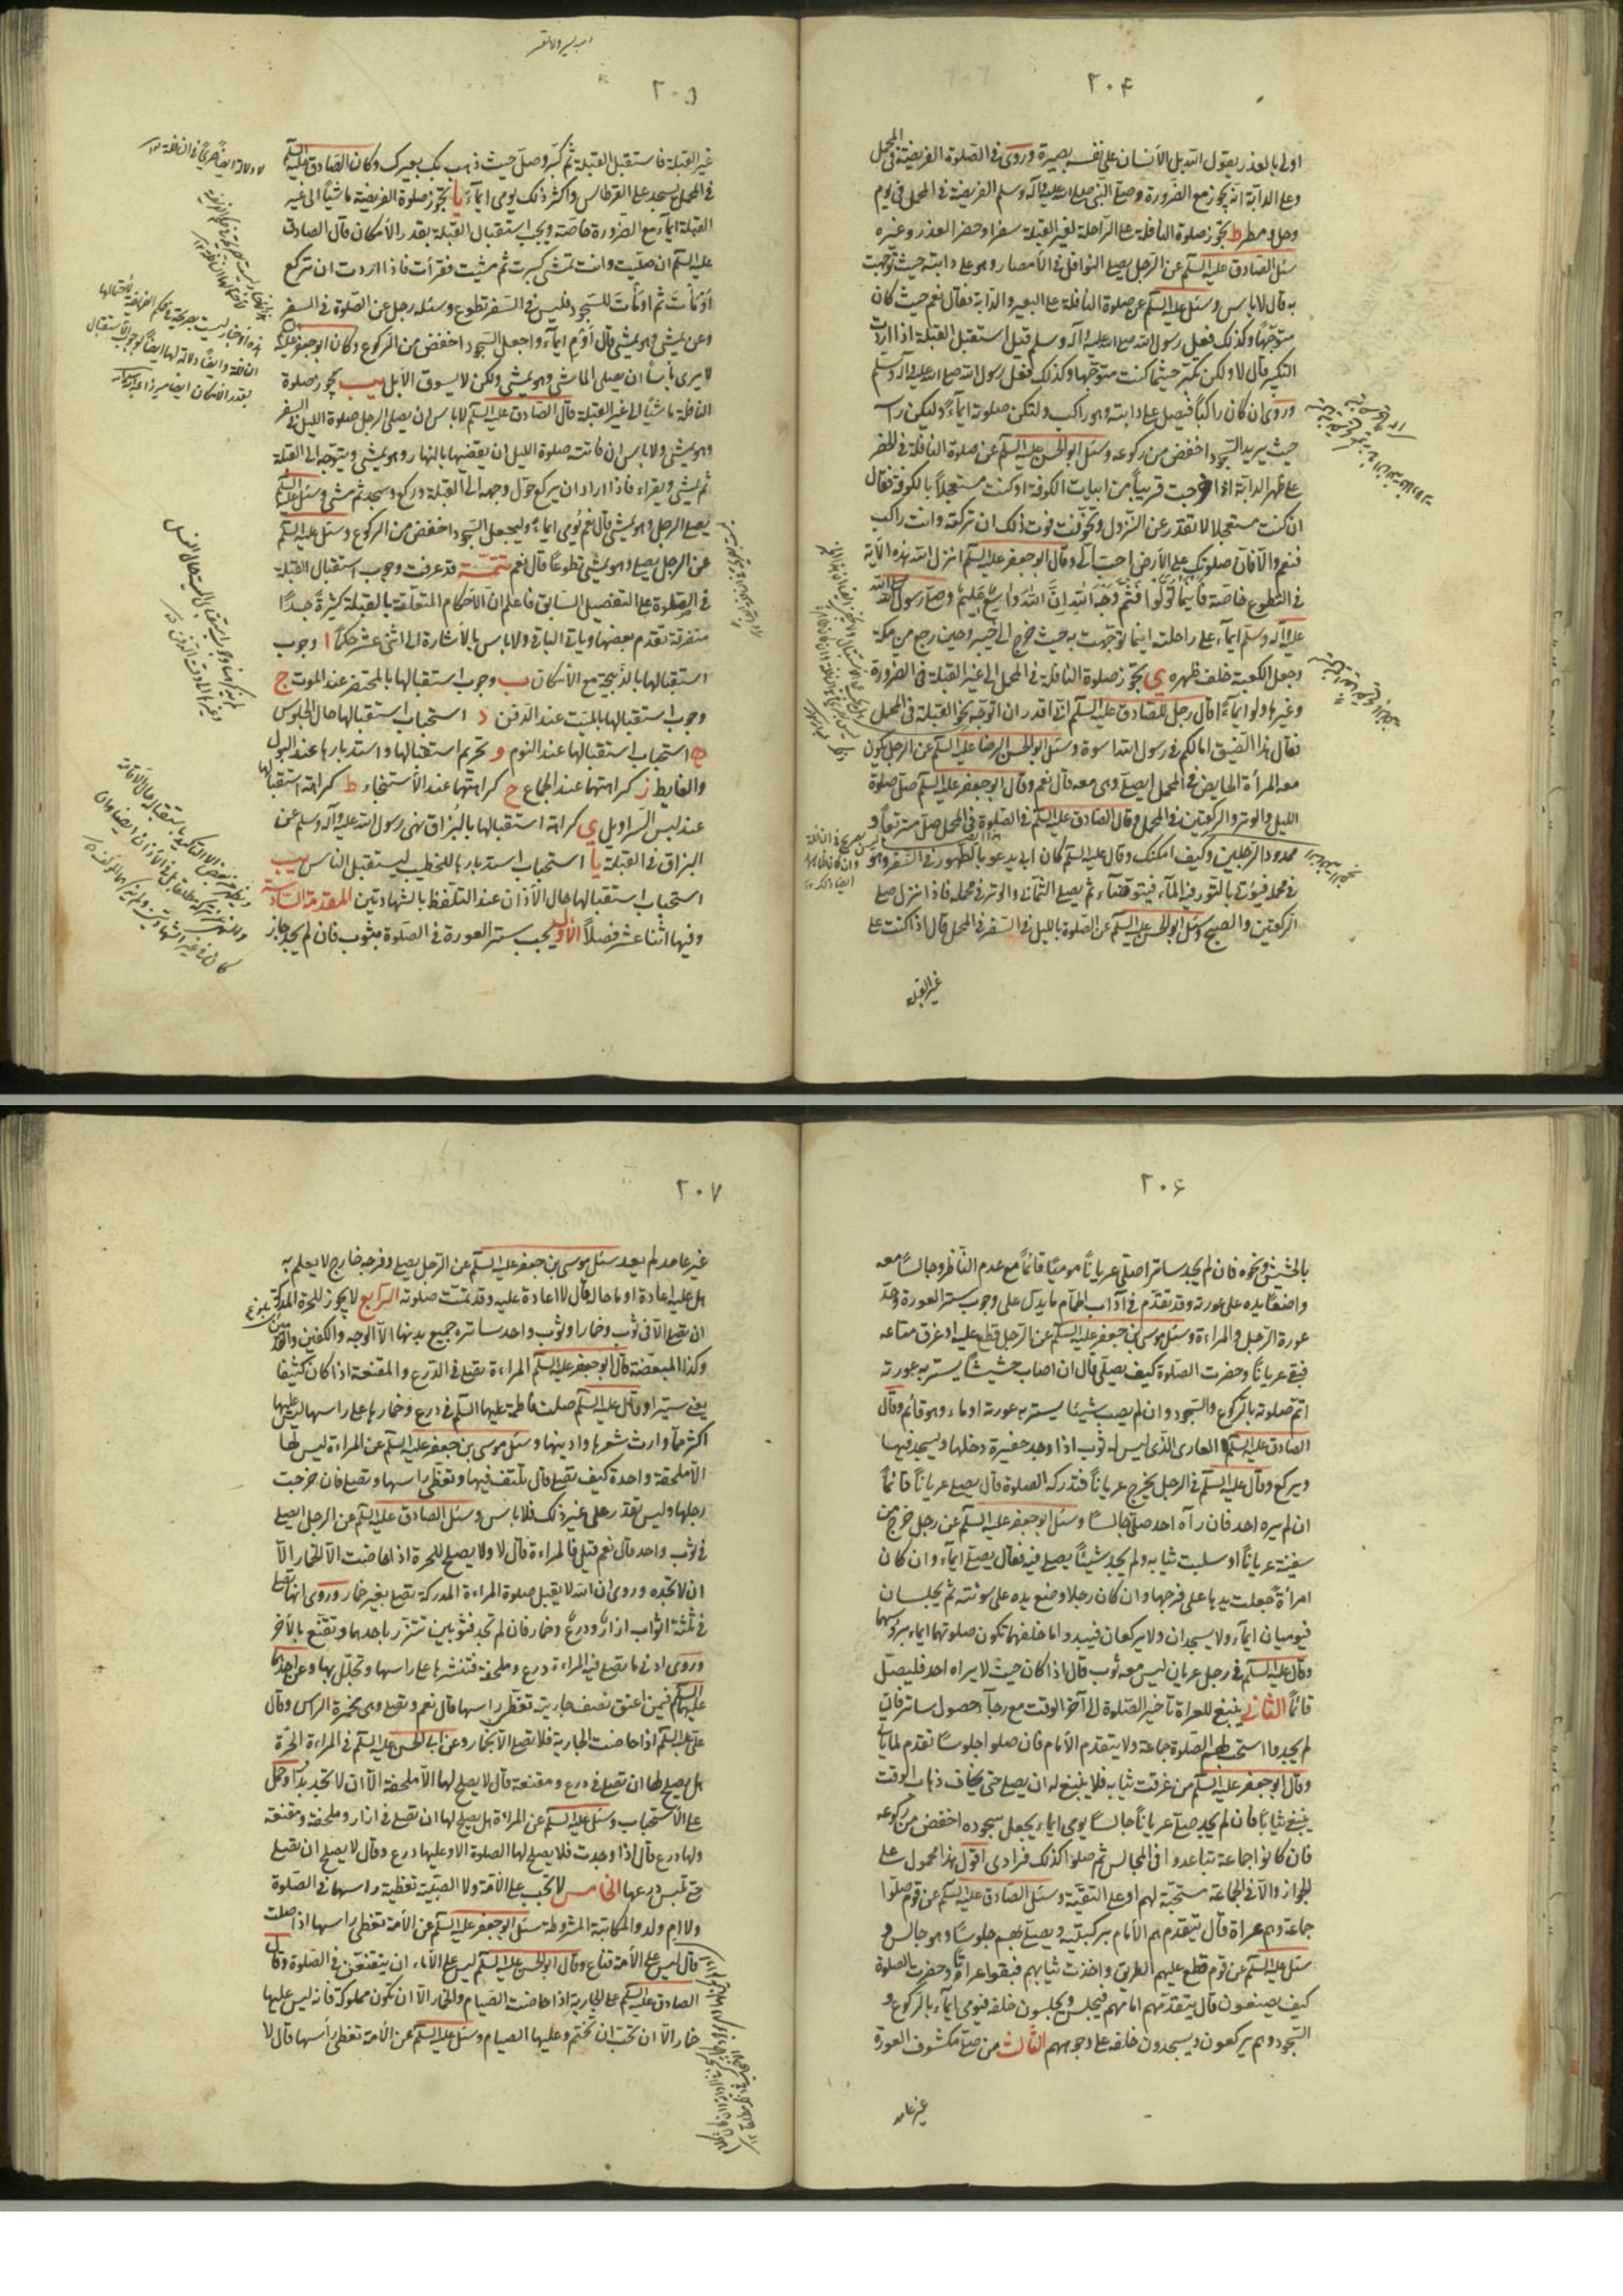 ٢٠۴
اولى بالعذر يقول الله بل الانسان على نفسه بصيرة وروى فى الصلوة الفريضة فى المحمل
وعلى الدابة انه يجوز مع الضرورة وصلى النبى صلى الله عليه وآله وسلم الفريضة فى المحمل فى يوم
وحل ومطر ط تجوز صلوة النافلة على الراحلة لغير القبلة سفرا وحضرا لعذر وغيره
سئل الصادق عليه السلم عن الرجل يصلى النوافل فى الامصار وهو على دابته حيث توجهت
به قال لا باس وسئل عليه السلم عن صلوة النافلة على البعير والدابة فقال نعم حيث كان
متوجها وكذلك فعل رسول الله صلى الله عليه وآله وسلم قيل استقبل القبلة اذا اردت
التكبير قال لا ولكن تكبر حيثما كنت متوجها وكذلك فعل رسول الله صلى الله عليه وآله وسلم
وروى ان كان راكبا فيصل على دابته وهو راكب ولتكن صلوته ايماء وليكن راسه
حيث يريد السجود اخفض من ركوعه وسئل ابو الحسن عليه السلم عن صلوة النافلة فى الحضر
على ظهر الدابة اذا خرجت قريبا من ابيات الكوفة او كنت مستعجلا بالكوفة فقال
ان كنت مستعجلا لا تقدر عن النزول وتخوفت فوت ذلك ان تركته وانت راكب
فنعم والا فان صلوتك على الارض احب الى وقال ابو جعفر عليه السلم انزل الله هذه الآية
فى التطوع خاصة فاينما تولوا فثم وجه الله ان الله واسع عليم وصلى رسول الله صلى الله
عليه وآله وسلم ايماء على راحلته اينما توجهت به حيث خرج الى خيبر وحين رجع من مكة
وجعل الكعبة خلف ظهره ى تجوز صلوة النافلة فى المحمل الى غير القبلة فى الضرورة
وغيرها ولو ايماء قال رجل للصادق عليه السلم انى اقدر ان اتوجه نحو القبلة فى المحمل
فقال هذا الضيق امالكم فى رسول الله اسوة وسئل ابو الحسن الرضا عليه السلم عن الرجل يكون
معه المرأة الحايض فى المحمل ايصلى وهى معه قال نعم وقال ابو جعفر عليه السلم صل صلوة
الليل والوتر والركعتين فى المحمل وقال الصادق عليه السلم فى الصلوة فى المحمل صل متربعا و
ممدود الرجلين وكيف امكنك وقال عليه السلم كان ابى يدعو بالطهور فى السفر وهو
فى محمله فيؤتى بالتور فيه الماء فيتوضاء ثم يصلى الثمانى والوتر فى محمله فاذا نزل صلى
الركعتين والصبح وسئل ابو الحسن عليه السلم عن الصلوة بالليل فى السفر فى المحمل قال اذا كنت على
غير القبلة
٢٠۵
غير القبلة فاستقبل القبلة ثم كبر وصل حيث ذهب بك بعيرك وكان الصادق عليه السلم
فى المحمل يسجد على القرطاس واكثر ذلك يومى ايماء يا تجوز صلوة الفريضة ماشيا الى غير
القبلة ايماء مع الضرورة خاصة ويجب استقبال القبلة بقدر الامكان قال الصادق
عليه السلم ان صليت وانت تمشى كبرت ثم مشيت فقرأت فاذا اردت ان تركع
اومأت ثم اومأت للسجود فليس فى السفر تطوع وسئله رجل عن الصلوة فى السفر
وعن يمشى وهو يمشى قال اوم ايماء واجعل السجود اخفض من الركوع وكان ابو جعفر عليه السلم
لا يرى باسا ان يصلى الماشى وهو يمشى ولكن لا يسوق الابل يب تجوز صلوة
النافلة ماشيا الى غير القبلة قال الصادق عليه السلم لا باس ان يصلى الرجل صلوة الليل فى السفر
وهو يمشى ولا باس ان فاتته صلوة الليل ان يقضيها بالنهار وهو يمشى ويتوجه الى القبلة
ثم يمشى ويقراء فاذا اراد ان يركع حول وجهه الى القبلة وركع وسجد ثم مشى وسئل عليه السلم
يصلى الرجل وهو يمشى قال نعم يومى ايماء وليجعل السجود اخفض من الركوع وسئل عليه السلم
عن الرجل يصلى وهو يمشى تطوعا قال نعم تتمة قد عرفت وجوب استقبال القبلة
فى الصلوة على التفصيل السابق فاعلم ان الاحكام المتعلقة بالقبلة كثيرة جدا
متفرقة تقدم بعضها وياتى الباقى ولا باس بالاشارة الى اثنى عشر حكما ا وجوب
استقبالها بالذبيحة مع الامكان ب وجوب استقبالها بالمحتضر عند الموت ج
وجوب استقبالها بالميت عند الدفن د استحباب استقبالها حال الجلوس
ه استحباب استقبالها عند النوم و تحريم استقبالها واستدبارها عند البول
والغايط ز كراهتهما عند الجماع ح كراهتهما عند الاستنجاء ط كراهة استقبالها
عند لبس السراويل ى كراهة استقبالها بالبزاق نهى رسول الله عليه وآله وسلم عن
البزاق فى القبلة يا استحباب استدبارها للخطيب ليستقبل الناس يب
استحباب استقبالها حال الاذان عند التلفظ بالشهادتين المقدمة السادسة
وفيها اثنا عشر فصلا الاول يجب ستر العورة فى الصلوة بثوب فان لم يجد جاز
٢٠۶
بالحشيش ونحوه فان لم يجد ساترا صلى عريانا موميا قائما مع عدم الناظر وجالسا معه
واضعا يده على عورته وقد تقدم فى آداب الحمام ما يدل على وجوب ستر العورة وحد
عورة الرجل والمراءة وسئل موسى بن جعفر عليه السلم عن الرجل قطع عليه او غرق متاعه
فبقى عريانا وحضرت الصلوة كيف يصلى قال ان اصاب حشيشا يستر به عورته
اتم صلوته بالركوع والسجود وان لم يصب شيئا يستر به عورته اوماء وهو قائم وقال
الصادق عليه السلم العارى الذى ليس له ثوب اذا وجد حفيرة دخلها ويسجد فيها
ويركع وقال عليه السلم فى الرجل يخرج عريانا فتدركه الصلوة قال يصلى عريانا قائما
ان لم يره احد فان رآه احد صلى جالسا وسئل ابو جعفر عليه السلم عن رجل خرج من
سفينة عريانا او سلبت ثيابه ولم يجد شيئا يصلى فيه فقال يصلى ايماء وان كان
امرأة جعلت يديها على فرجها وان كان رجلا وضع يده على سوئته ثم يجلسان
فيوميان ايماء ولا يسجدان ولا يركعان فيبدو ما خلفهما تكون صلوتهما ايماء برؤسهما
وقال عليه السلم فى رجل عريان ليس معه ثوب قال اذا كان حيث لا يراه احد فليصل
قائما الثانى ينبغى للعراة تاخير الصلوة الى آخر الوقت مع رجاء حصول ساتر فان
لم يجدوا استحب لهم الصلوة جماعة ولا يتقدم الامام فان صلوا جلوسا تقدم لما ياتى
وقال ابو جعفر عليه السلم من غرقت ثيابه فلا ينبغى له ان يصلى حتى يخاف ذهاب الوقت
يبتغى ثيابا فان لم يجد صلى عريانا جالسا يومى ايماء يجعل سجوده اخفض من ركوعه
فان كانوا جماعة تباعدوا فى المجالس ثم صلوا كذلك فرادى اقول هذا محمول على
الجواز والا فى الجماعة مستحبة لهم او على التقية وسئل الصادق عليه السلم عن قوم صلوا
جماعة وهم عراة قال يتقدمهم الامام بركبتيه ويصلى بهم جلوسا وهو جالس و
سئل عليه السلم عن قوم قطع عليهم الطريق واخذت ثيابهم فبقوا عراة وحضرت الصلوة
كيف يصنعون قال يتقدمهم امامهم فيجلس ويجلسون خلفه فيومى ايماء بالركوع و
السجود وهم يركعون ويسجدون خلفه على وجوههم الثالث من صلى مكشوف العورة
غير عامد
٢٠٧
غير عامد لم يعد سئل موسى بن جعفر عليه السلم عن الرجل يصلى وفرجه خارج لا يعلم به
هل عليه اعادة او ما حاله قال لا اعادة عليه وقد تمت صلوته الرابع لا يجوز للحرة المدركة
ان تصلى الا فى ثوب وخمار او ثوب واحد ساتره جميع بدنها الا الوجه والكفين والقدمين
وكذا المبعضة قال ابو جعفر عليه السلم المراءة تصلى فى الدرع والمقنعة اذا كان كثيفا
يعنى ستيرا وقال عليه السلم صلت فاطمة عليها السلم فى درع وخمارها على راسها ليس عليها
اكثر مما وارت شعرها واذنيها وسئل موسى بن جعفر عليه السلم عن المراءة ليس لها
الا ملحفة واحدة كيف تصلى قال تلتف فيها وتغطى راسها وتصلى فان خرجت
رجلها وليس تقدر على غير ذلك فلا باس وسئل الصادق عليه السلم عن الرجل ايصلى
فى ثوب واحد قال نعم قيل فالمراءة قال لا ولا يصلح للحرة اذا حاضت الا الخمار الا
ان لا تجده وروى ان الله لا يقبل صلوة المراءة المدركة تصلى بغير خمار وروى انها تصلى
فى ثلثة اثواب ازار ودرع وخمار فان لم تجد فثوبين تتزر باحدهما وتقنع بالآخر
وروى ادنى ما تصلى فيه المراءة درع وملحفة فتنشرها على راسها وتجلل بها وعن احدهما
عليهما السلم فيمن اعتق نصف جاريته تغطى راسها قال نعم وتصلى وهى مخمرة الراس وقال
على عليه السلم اذا حاضت الجارية فلا تصلى الا بخمار وعن ابى الحسن عليه السلم فى المراءة الحرة
هل يصلح لها ان تصلى فى درع ومقنعة قال لا يصلح لها الا ملحفة الا ان لا تجد بدا وحمل
على الاستحباب وسئل عليه السلم عن المراءة هل يصلح لها ان تصلى فى ازار وملحفة ومقنعة
ولها درع قال اذا وجدت فلا يصلح لها الصلوة الا وعليها درع وقال لا يصلح ان تصلى
حتى تلبس درعها الخامس لا تجب على الامة ولا الصبية تغطية راسها فى الصلوة
ولا ام ولد والمكاتبة المشروطة سئل ابو جعفر عليه السلم عن الامة تغطى راسها اذا صلت
قال ليس على الامة قناع وقال ابو الحسن عليه السلم ليس على الاماء ان يتقنعن فى الصلوة وقال
الصادق عليه السلم على الجارية اذا حاضت الصيام والخمار الا ان تكون مملوكة فانه ليس عليها
خمار الا ان تحب ان تختمر وعليها الصيام وسئل عليه السلم عن الامة تغطى رأسها قال لا